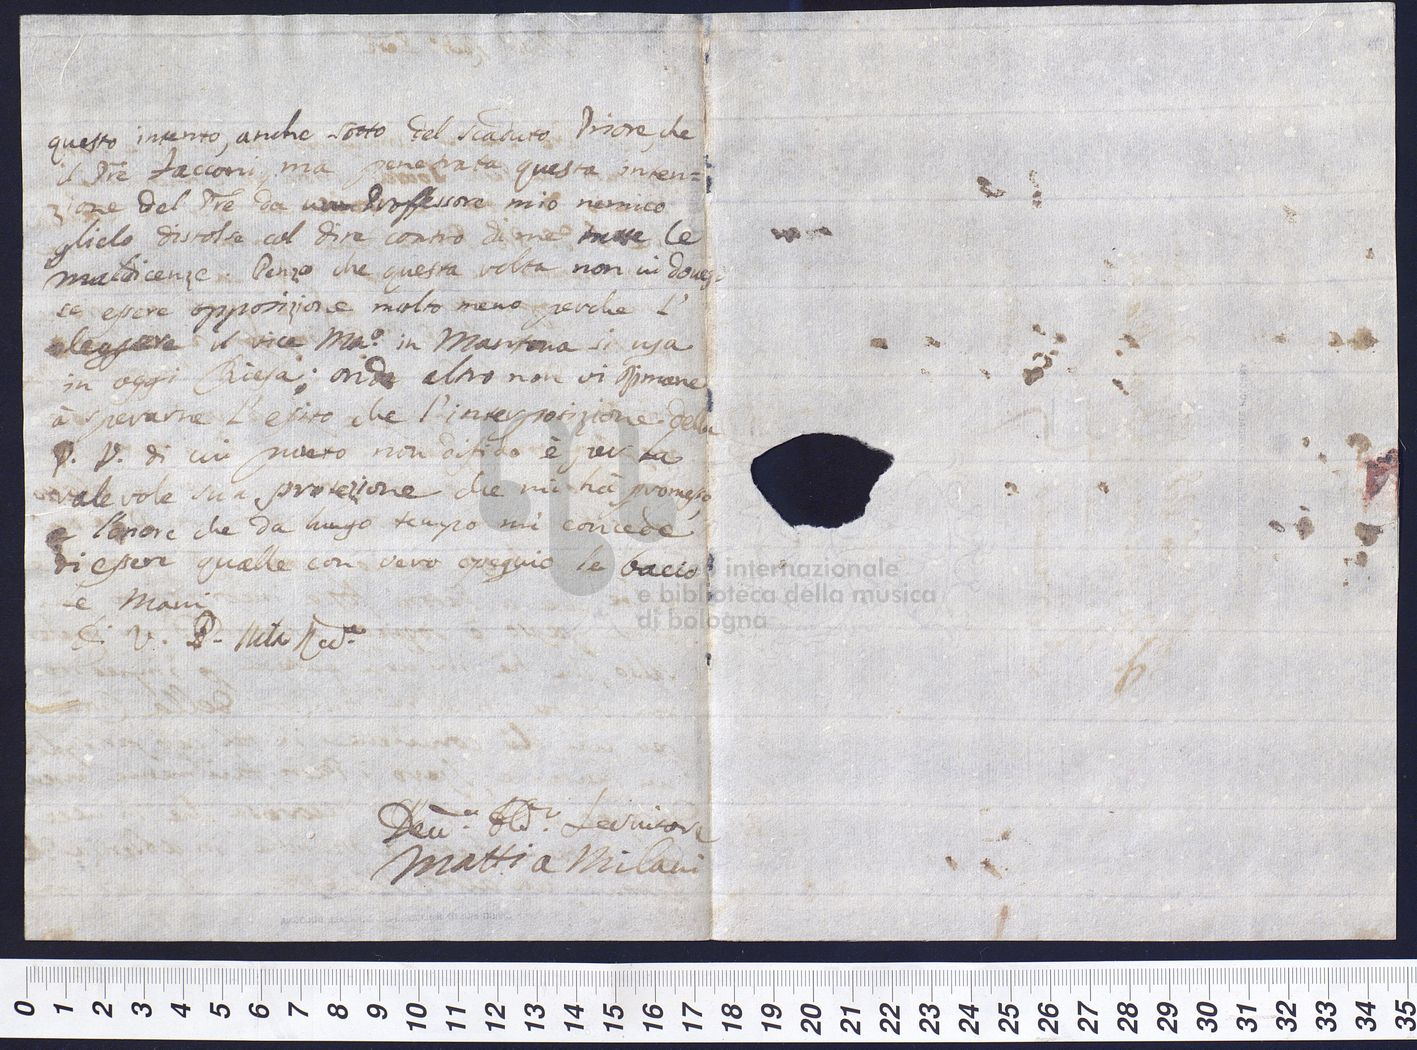 questo intento, anche sotto del scaduto Priore, che
il Pre Zacconi, ma penetrata questa inten=
zione del Pre da un Proffessore mio nemico
glielo distolse col dire contro di me tutte le
maldicenze. Penso che questa volta non vi doves=
se essere opposizione molto meno perche l'
eleggere il vice Mao. in Mantova si usa
in oggi Chiesa; onde altro non vi rimane
à sperarne l'esito che l'interposizione della
P. V. di cui punto non difido è
valevole sua protezione che mi hà promesso,
e l'onore che da lungo tempo mi concede
di essere quelle con vero osequio le bacio
le Mani
Di V. P. Mta Reda.
Deuo. Obldo. Servitore
Mattia Milani
museo internazionale
e biblioteca della musica
di bologna
6
0 1 2 3 4 5 6 7 8 9 10 11 12 13 14 15 16 17 18 19 20 21 22 23 24 25 26 27 28 29 30 31 32 33 34 35